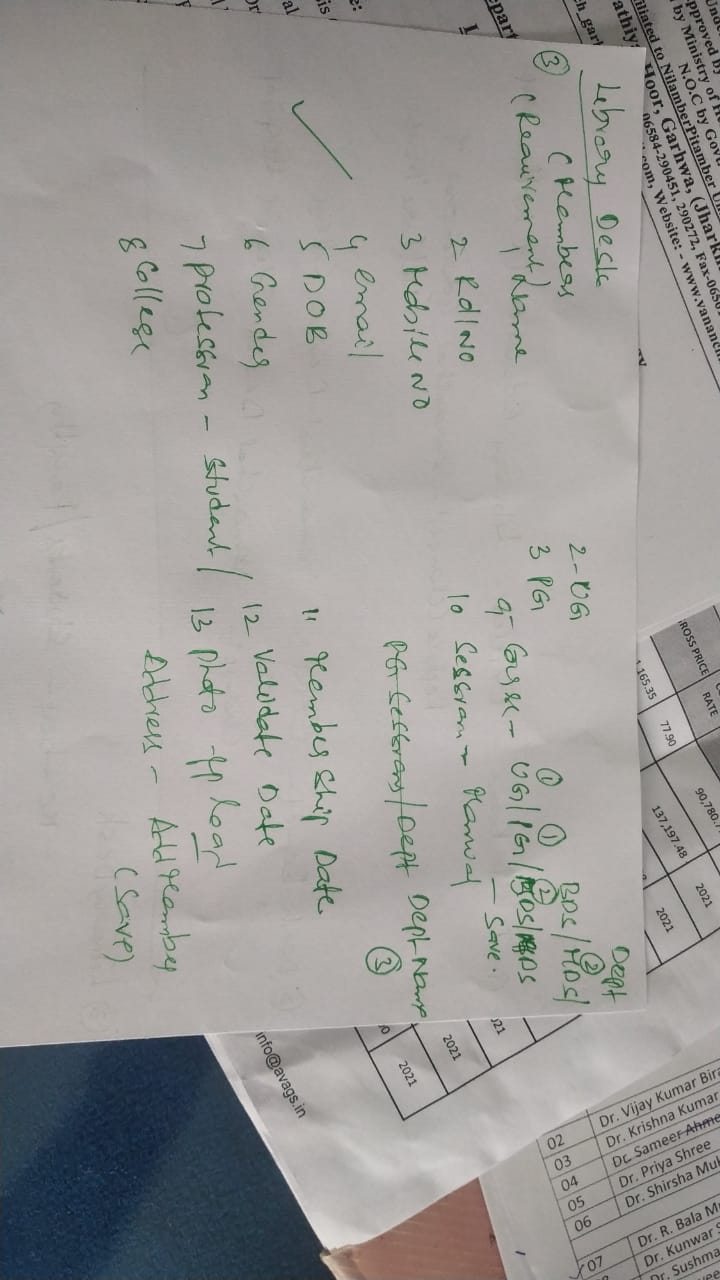 Lebrary Desk
③ (Members
(Reauirement) Name
2 Roll NO
3 Mobile NO
4 Email
5 DOB
6 Gender
7 Profession - Student /
8 College
Dept
2 - UG
3 PG
BDS / MDS /
②
① ① ②
9 - Course - UG / PG / BDS / MDS
10 Session - Manual - Save.
PG-Session / Dept Dept Name
③
11 Member Ship Date
12 Validate Date
13 Photo up load
Address - Add Member
(Save)
by Ministry of
N.O.C by Gov
filiated to NilamberPitamber
Hoor, Garhwa, (Jhark
06584-290451, 290272, Fax-065
com, Website: - www.vananc
ROSS PRICE
RATE
165.35
77.90
90,780.
137,197.48
2021
2021
2021
2021
2021
info@avags.in
02 Dr. Vijay Kumar Bir
03 Dr. Krishna Kumar
04 Dr. Sameer Ahme
05 Dr. Priya Shree
06 Dr. Shirsha Mu
07 Dr. R. Bala M
Dr. Kunwar
Dr. Sushma